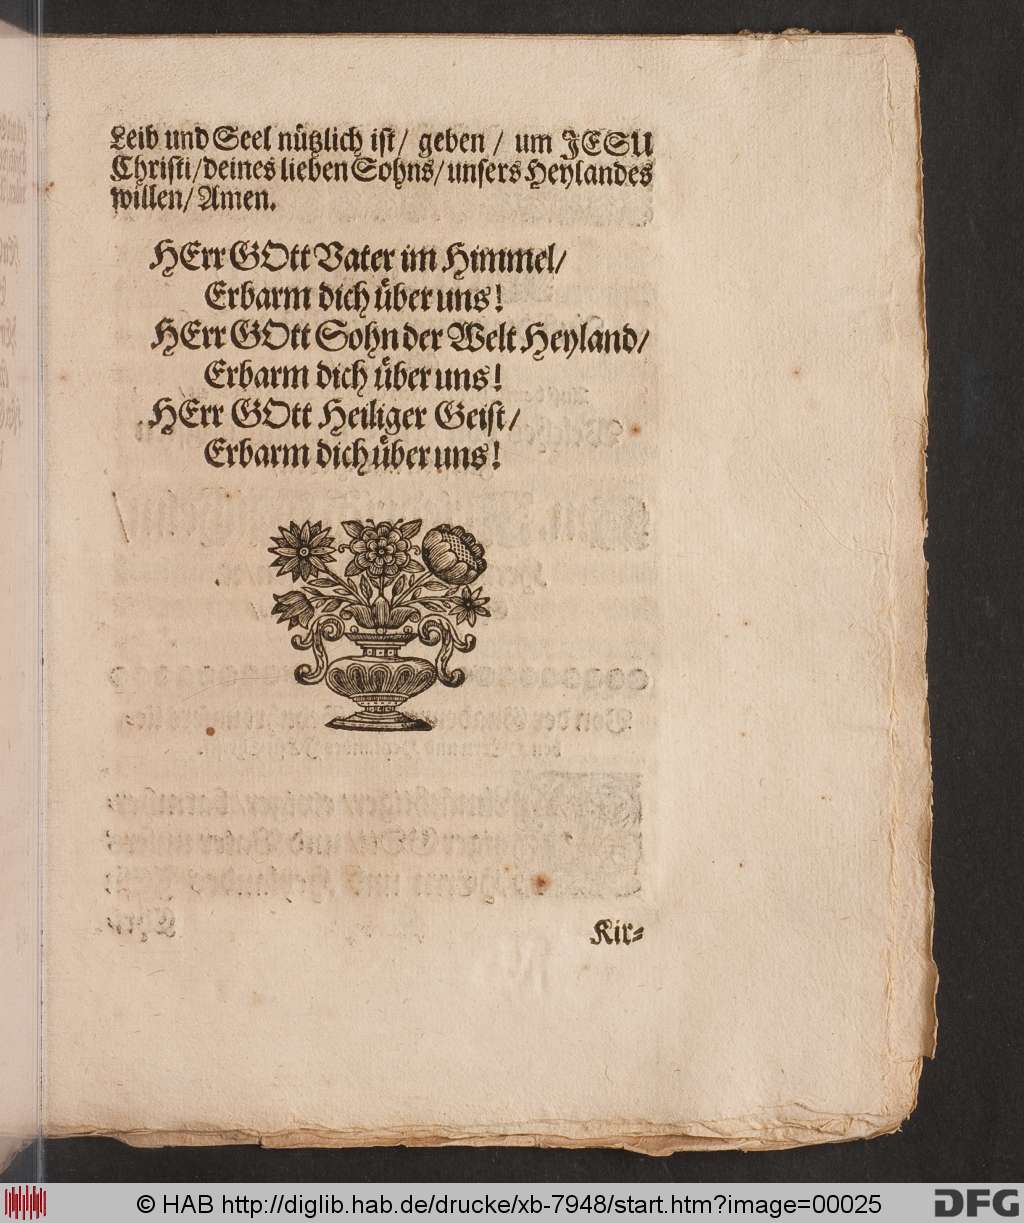 Leib und Seel nützlich ist/ geben / um JESU
Christi/ deines lieben Sohns/ unsers Heylandes
willen/ Amen.
HErr GOtt Vater im Himmel/
Erbarm dich über uns!
HErr GOtt Sohn der Welt Heyland/
Erbarm dich über uns!
HErr GOtt Heiliger Geist/
Erbarm dich über uns!
Kir-
© HAB http://diglib.hab.de/drucke/xb-7948/start.htm?image=00025
DFG